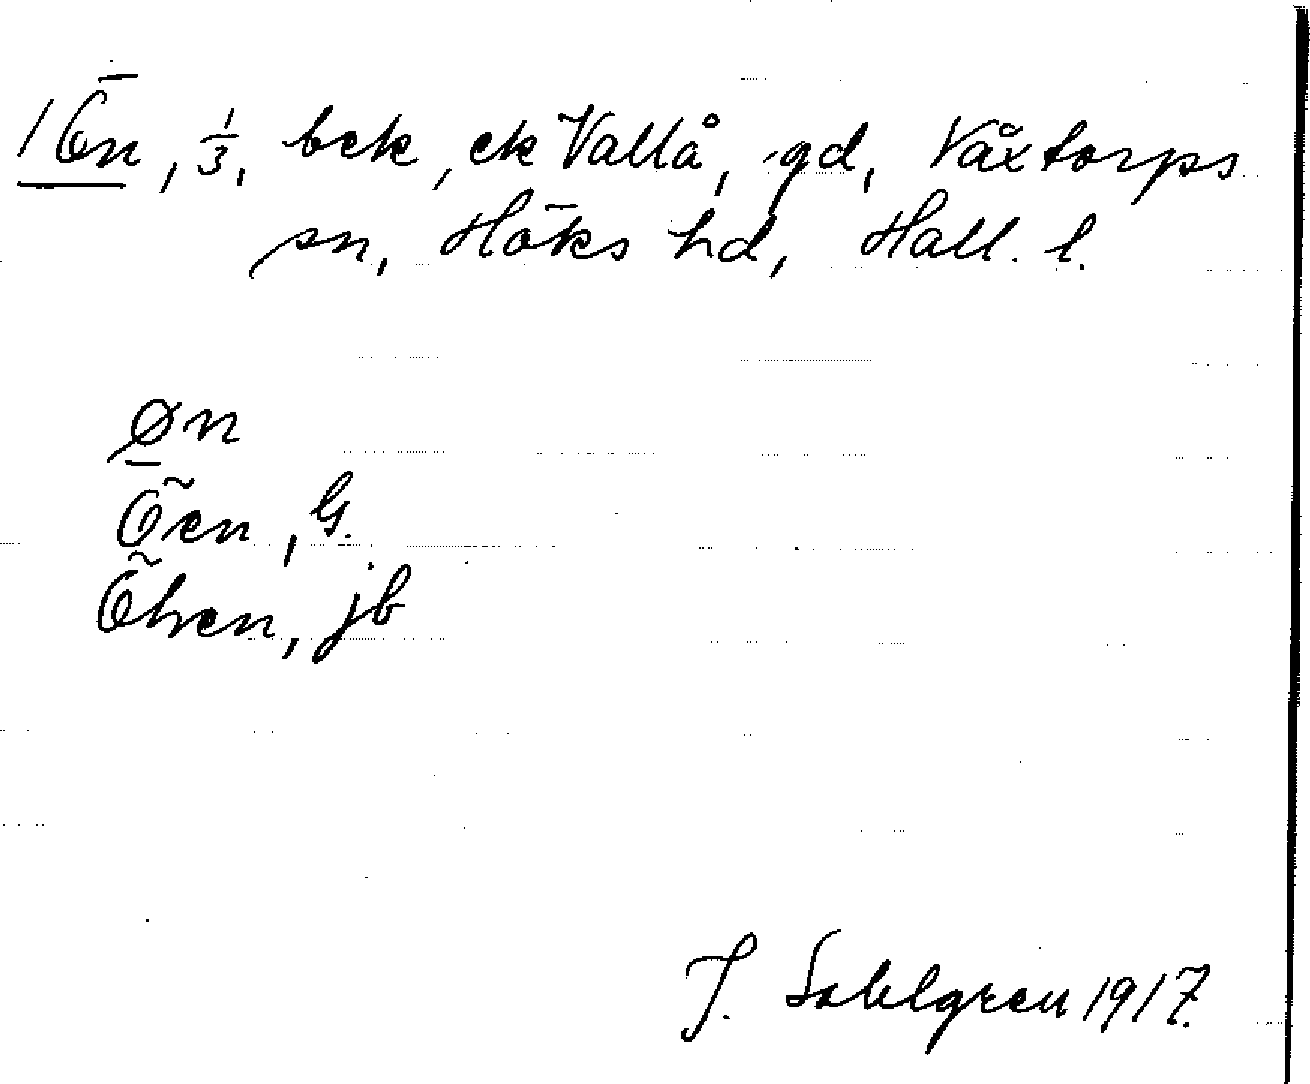 1 Ön, 1/3, bek, ek Vallå, gd, Våxtorps
sn, Höks hd, Hall. l.
øn
Öen, G.
Öhen, jb
J. Sahlgren 1917.